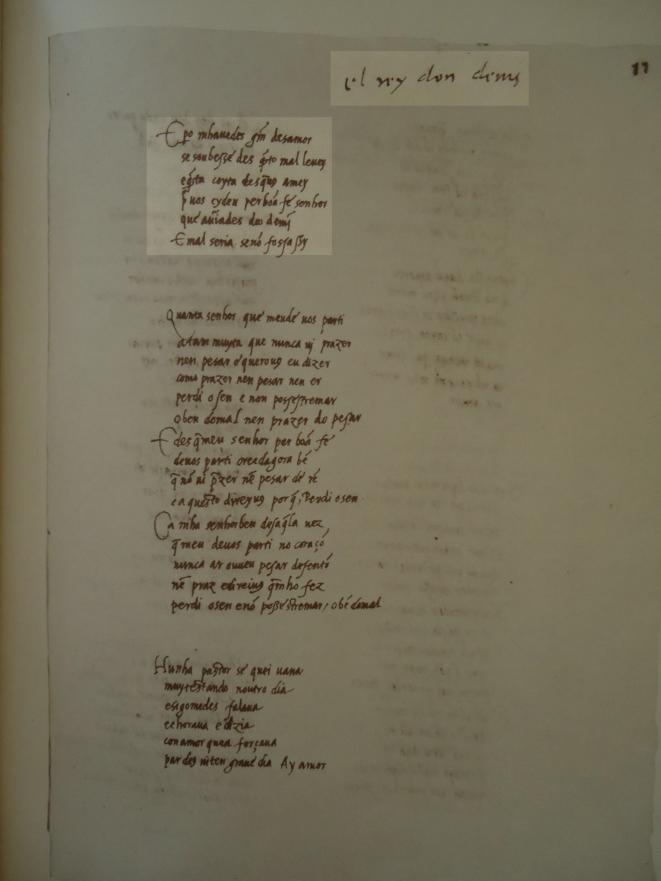 el rey don denis
17
E po mhauedes grã desamor
se soubessē des q̃to mal leuey
e q̃ta coyta des q̃uꝯ amey
p̃ uos cydeu per bōa fe senhor
que auiades doo de mĩ
E mal seria senō fossassy
Quanta senhor que meude uos parti
atam muyta que nunca ui prazer
nen pesar e querouꝯ eu dizer
como prazer nen pesar nen er
perdi o sen e non possestremar
o ben do mal nen prazer do pesar
E des q̃ meu senhor per bōa fe
de uos parti creedagora bē
q̃ nō ui p̃zer nē pesar de rē
e a questo direyuꝯ por q̃ Perdi o sen
Ca mha senhor ben des aq̃la uez
q̃ meu de uos parti no coraçō
nunca ar ouueu pesar des entō
nē praz e direiuꝯ q̃ mho fez
perdi o sen e nō possestremar o bē do mal
Hunha pastor se quei uaua
muyt estando noutro dia
e sigo medes falaua
e choraua e dizia
con amor que a forçaua
par des uiten graue dia Ay amor